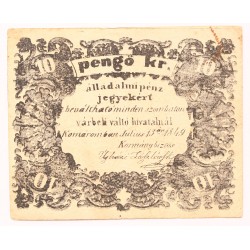 10 10
pengő kr.
álladalmi pénz
jegyekért
beváltható minden szombaton
várbeli váltó hivatalnál
Komáromban Julius 15én 1849
Kormánybiztos
10 10